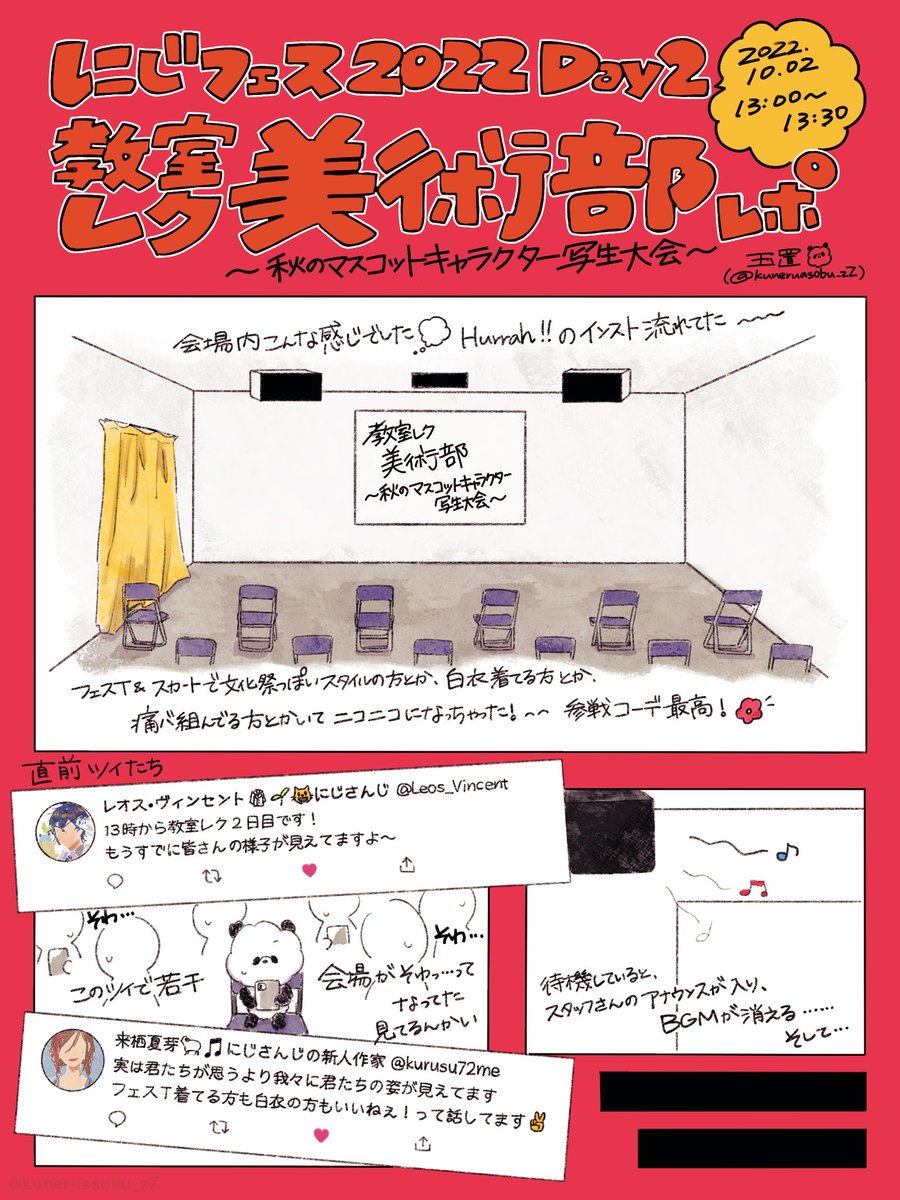 にじフェス2022 Day2
2022.
10.02
13:00〜
13:30
教室レク 美術部レポ
〜秋のマスコットキャラクター写生大会〜
玉置
(@kuneruasobu_zZ)
会場内こんな感じでした Hurrah!!のインスト流れてた〜〜〜
教室レク
美術部
〜秋のマスコットキャラクター
写生大会〜
フェスT&スカートで文化祭っぽいスタイルの方とか、白衣着てる方とか、
痛バ組んでる方とかいて ニコニコになっちゃった!〜〜 参戦コーデ最高!
直前ツイたち
レオス・ヴィンセント🌱😸にじさんじ @Leos_Vincent
13時から教室レク2日目です!
もうすでに皆さんの様子が見えてますよ〜
そわ…
そわ…
このツイで若干
会場がそわっ…って
なってた
見てるんかい
来栖夏芽🐑🎵にじさんじの新人作家 @kurusu72me
実は君たちが思うより我々に君たちの姿が見えてます
フェスT着てる方も白衣の方もいいねぇ!って話してます✌
待機していると、
スタッフさんのアナウンスが入り、
BGMが消える……
そして…
@kuneruasobu_zZ